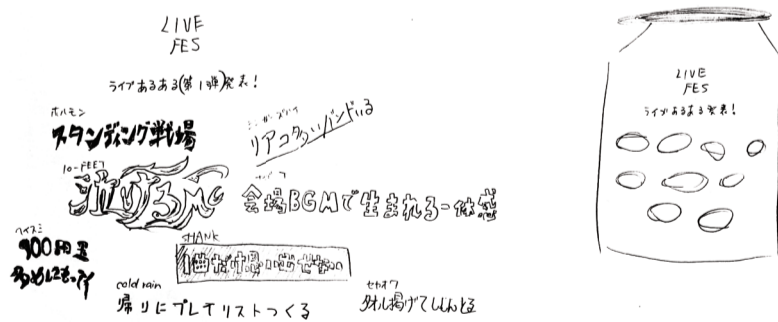 LIVE
FES
ライブあるある(第1弾)発表!
ホルモン
スタンディング戦場
リアコ バンドいる
10-FEET
泣けるMC
会場BGMで生まれる一体感
ヘイスミ
500円玉
SHANK
1曲だけ思い出せない
cold rain
帰りにプレイリストつくる
タオル掲げて
LIVE
FES
ライブあるある発表!